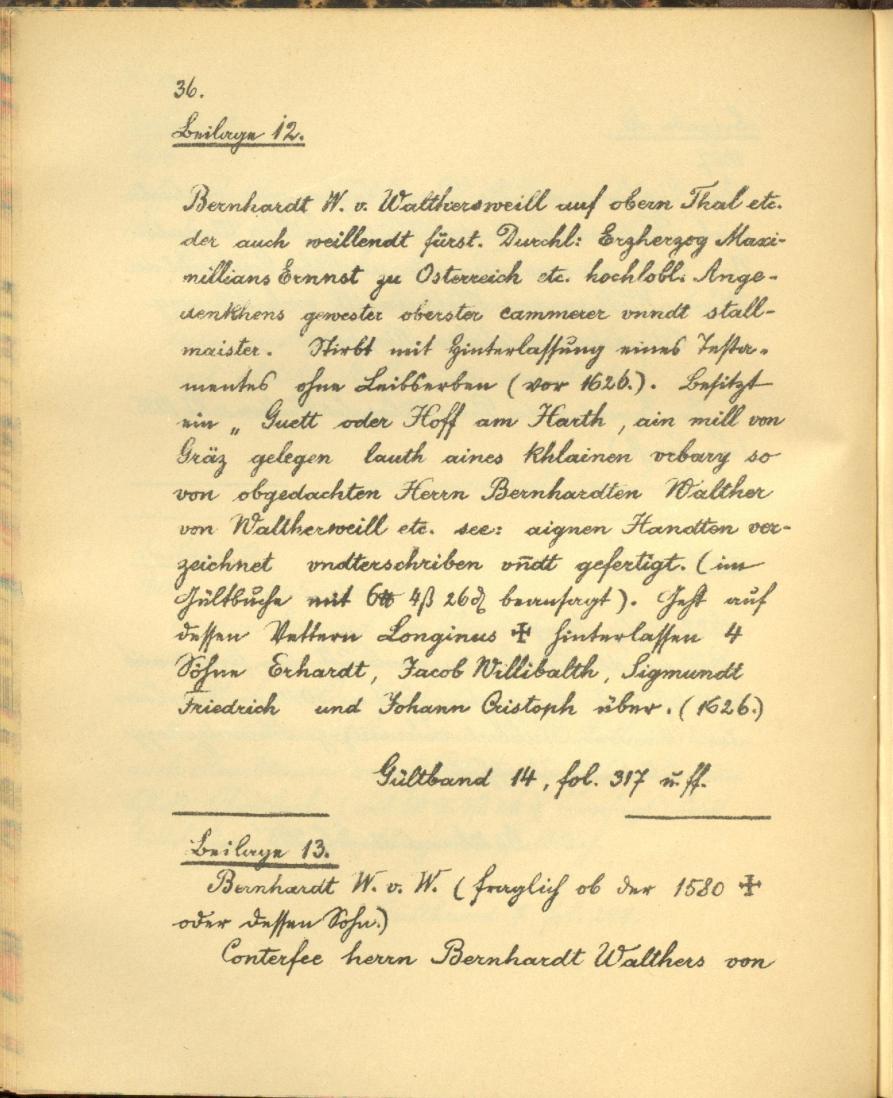 36.
Beilage 12.
Bernhardt W. v. Walthersweill auf obern Thal etc.
der auch weillendt fürst. Durchl: Erzherzog Maxi-
millians Ernnst zu Osterreich etc. hochlobl. Ange-
denkhens gewester oberster cammerer vnndt stall-
maister. Stirbt mit Hinterlassung eines Testa-
mentes ohne Leibserben (vor 1626.). Besitzt
ein „Guett oder Hoff am Harth, ain mill von
Gräz gelegen lauth aines khlainen vrbary so
von obgedachten Herrn Bernhardten Walther
von Waltherweill etc. see: aignen Handten ver-
zeichnet vndterschriben vn̄dt gefertigt. (im
Gültbuche mit 6 ℔ 4 ß 26 ₰ beansagt). Geht auf
dessen Vettern Longinus ✠ hinterlassen 4
Söhne Erhardt, Jacob Willibalth, Sigmundt
Friedrich und Johann Cristoph über. (1626.)
Gültband 14, fol. 317 u. ff.
Beilage 13.
Bernhardt W. v. W. (fraglich ob der 1580 ✠
oder dessen Sohn.)
Conterfee herrn Bernhardt Walthers von